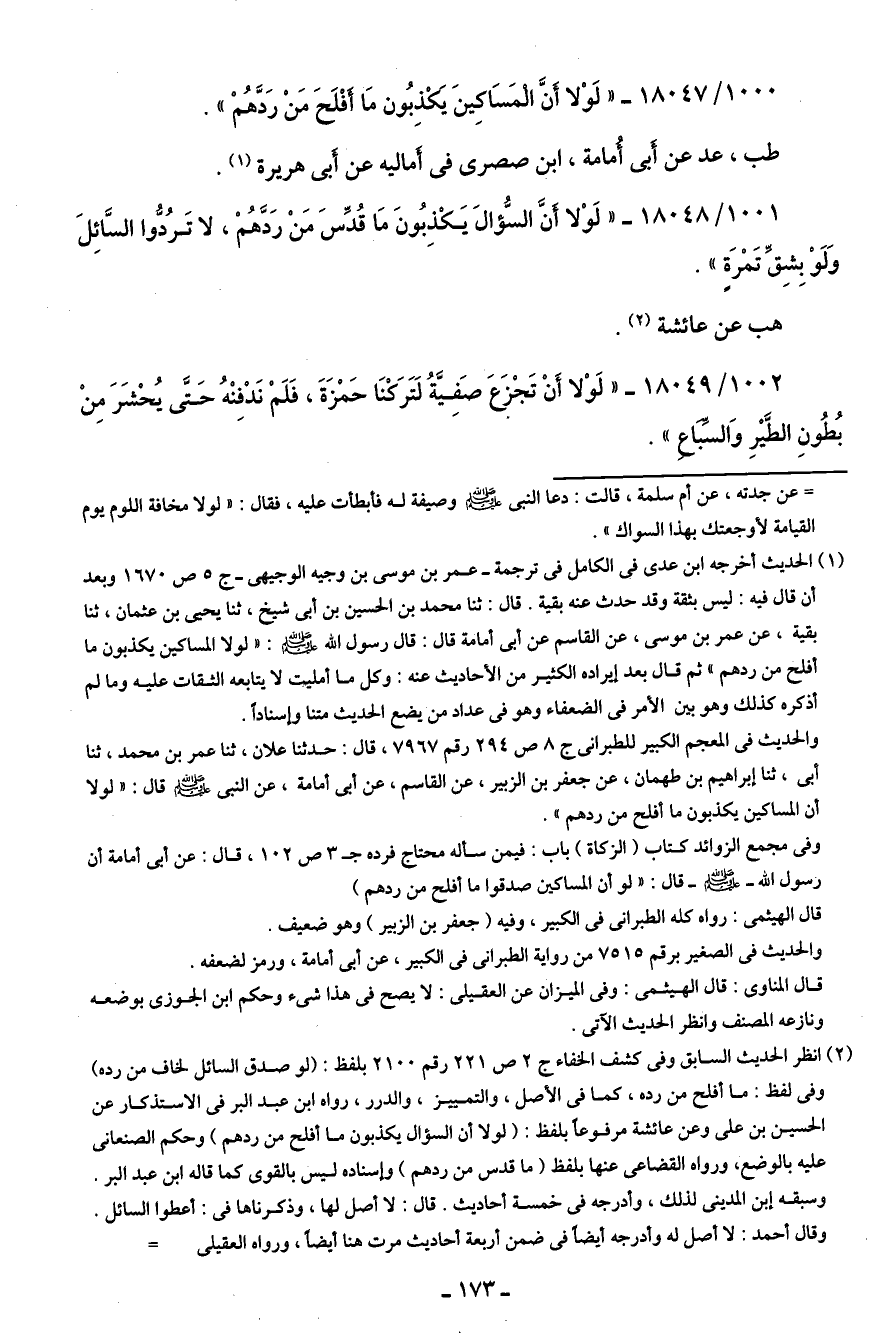 ١٨٠٤٧/١٠٠٠ ـ « لَوْلا أَنَّ الْمَسَاكِينَ يَكْذِبُون مَا أَفْلَحَ مَنْ رَدَّهُمْ » .
طب ، عد عن أَبى أُمامة ، ابن صصرى فى أَماليه عن أَبى هريرة (١) .
١٨٠٤٨/١٠٠١ ـ « لَوْلا أَنَّ السُّؤَالَ يَكْذِبُونَ مَا قُدِّسَ مَنْ رَدَّهُمْ ، لا تَرُدُّوا السَّائِلَ
وَلَوْ بِشِقِّ تَمْرَةٍ » .
هب عن عائشة (٢) .
١٨٠٤٩/١٠٠٢ ـ « لَوْلا أَنْ تَجْزَعَ صَفِيَّةُ لَتَرَكْنَا حَمْزَةَ ، فَلَمْ نَدْفِنْهُ حَتَّى يُحْشَرَ مِنْ
بُطُونِ الطَّيْرِ وَالسِّبَاعِ » .
= عن جدته ، عن أم سلمة ، قالت : دعا النبى ﷺ وصيفة له فأبطأت عليه ، فقال : « لولا مخافة اللوم يوم
القيامة لأوجعتك بهذا السواك » .
(١) الحديث أخرجه ابن عدى فى الكامل فى ترجمة ـ عمر بن موسى بن وجيه الوجيهى ـ ج ٥ ص ١٦٧٠ وبعد
أن قال فيه : ليس بثقة وقد حدث عنه بقية . قال : ثنا محمد بن الحسين بن أبى شيخ ، ثنا يحيى بن عثمان ، ثنا
بقية ، عن عمر بن موسى ، عن القاسم عن أبى أمامة قال : قال رسول الله ﷺ : « لولا المساكين يكذبون ما
أفلح من ردهم » ثم قال بعد إيراده الكثير من الأحاديث عنه : وكل ما أمليت لا يتابعه الثقات عليه وما لم
أذكره كذلك وهو بين الأمر فى الضعفاء وهو فى عداد من يضع الحديث متنا وإسناداً .
والحديث فى المعجم الكبير للطبرانى ج ٨ ص ٢٩٤ رقم ٧٩٦٧ ، قال : حدثنا علان ، ثنا عمر بن محمد ، ثنا
أبى ، ثنا إبراهيم بن طهمان ، عن جعفر بن الزبير ، عن القاسم ، عن أبى أمامة ، عن النبى ﷺ قال : « لولا
أن المساكين يكذبون ما أفلح من ردهم » .
وفى مجمع الزوائد كتاب ( الزكاة ) باب : فيمن سأله محتاج فرده جـ ٣ ص ١٠٢ ، قال : عن أبى أمامة أن
رسول الله ـ ﷺ ـ قال : « لو أن المساكين صدقوا ما أفلح من ردهم )
قال الهيثمى : رواه كله الطبرانى فى الكبير ، وفيه ( جعفر بن الزبير ) وهو ضعيف .
والحديث فى الصغير برقم ٧٥١٥ من رواية الطبرانى فى الكبير ، عن أبى أمامة ، ورمز لضعفه .
قال المناوى : قال الهيثمى : وفى الميزان عن العقيلى : لا يصح فى هذا شىء وحكم ابن الجوزى بوضعه
ونازعه المصنف وانظر الحديث الآتى .
(٢) انظر الحديث السابق وفى كشف الخفاء ج ٢ ص ٢٢١ رقم ٢١٠٠ بلفظ : (لو صدق السائل لخاف من رده)
وفى لفظ : ما أفلح من رده ، كما فى الأصل ، والتمييز ، والدرر ، رواه ابن عبد البر فى الاستذكار عن
الحسين بن على وعن عائشة مرفوعاً بلفظ : ( لولا أن السؤال يكذبون ما أفلح من ردهم ) وحكم الصنعانى
عليه بالوضع، ورواه القضاعى عنها بلفظ ( ما قدس من ردهم ) وإسناده ليس بالقوى كما قاله ابن عبد البر .
وسبقه إبن المدينى لذلك ، وأدرجه فى خمسة أحاديث . قال : لا أصل لها ، وذكرناها فى : أعطوا السائل .
وقال أحمد : لا أصل له وأدرجه أيضاً فى ضمن أربعة أحاديث مرت هنا أيضاً ، ورواه العقيلى =
ـ ١٧٣ ـ